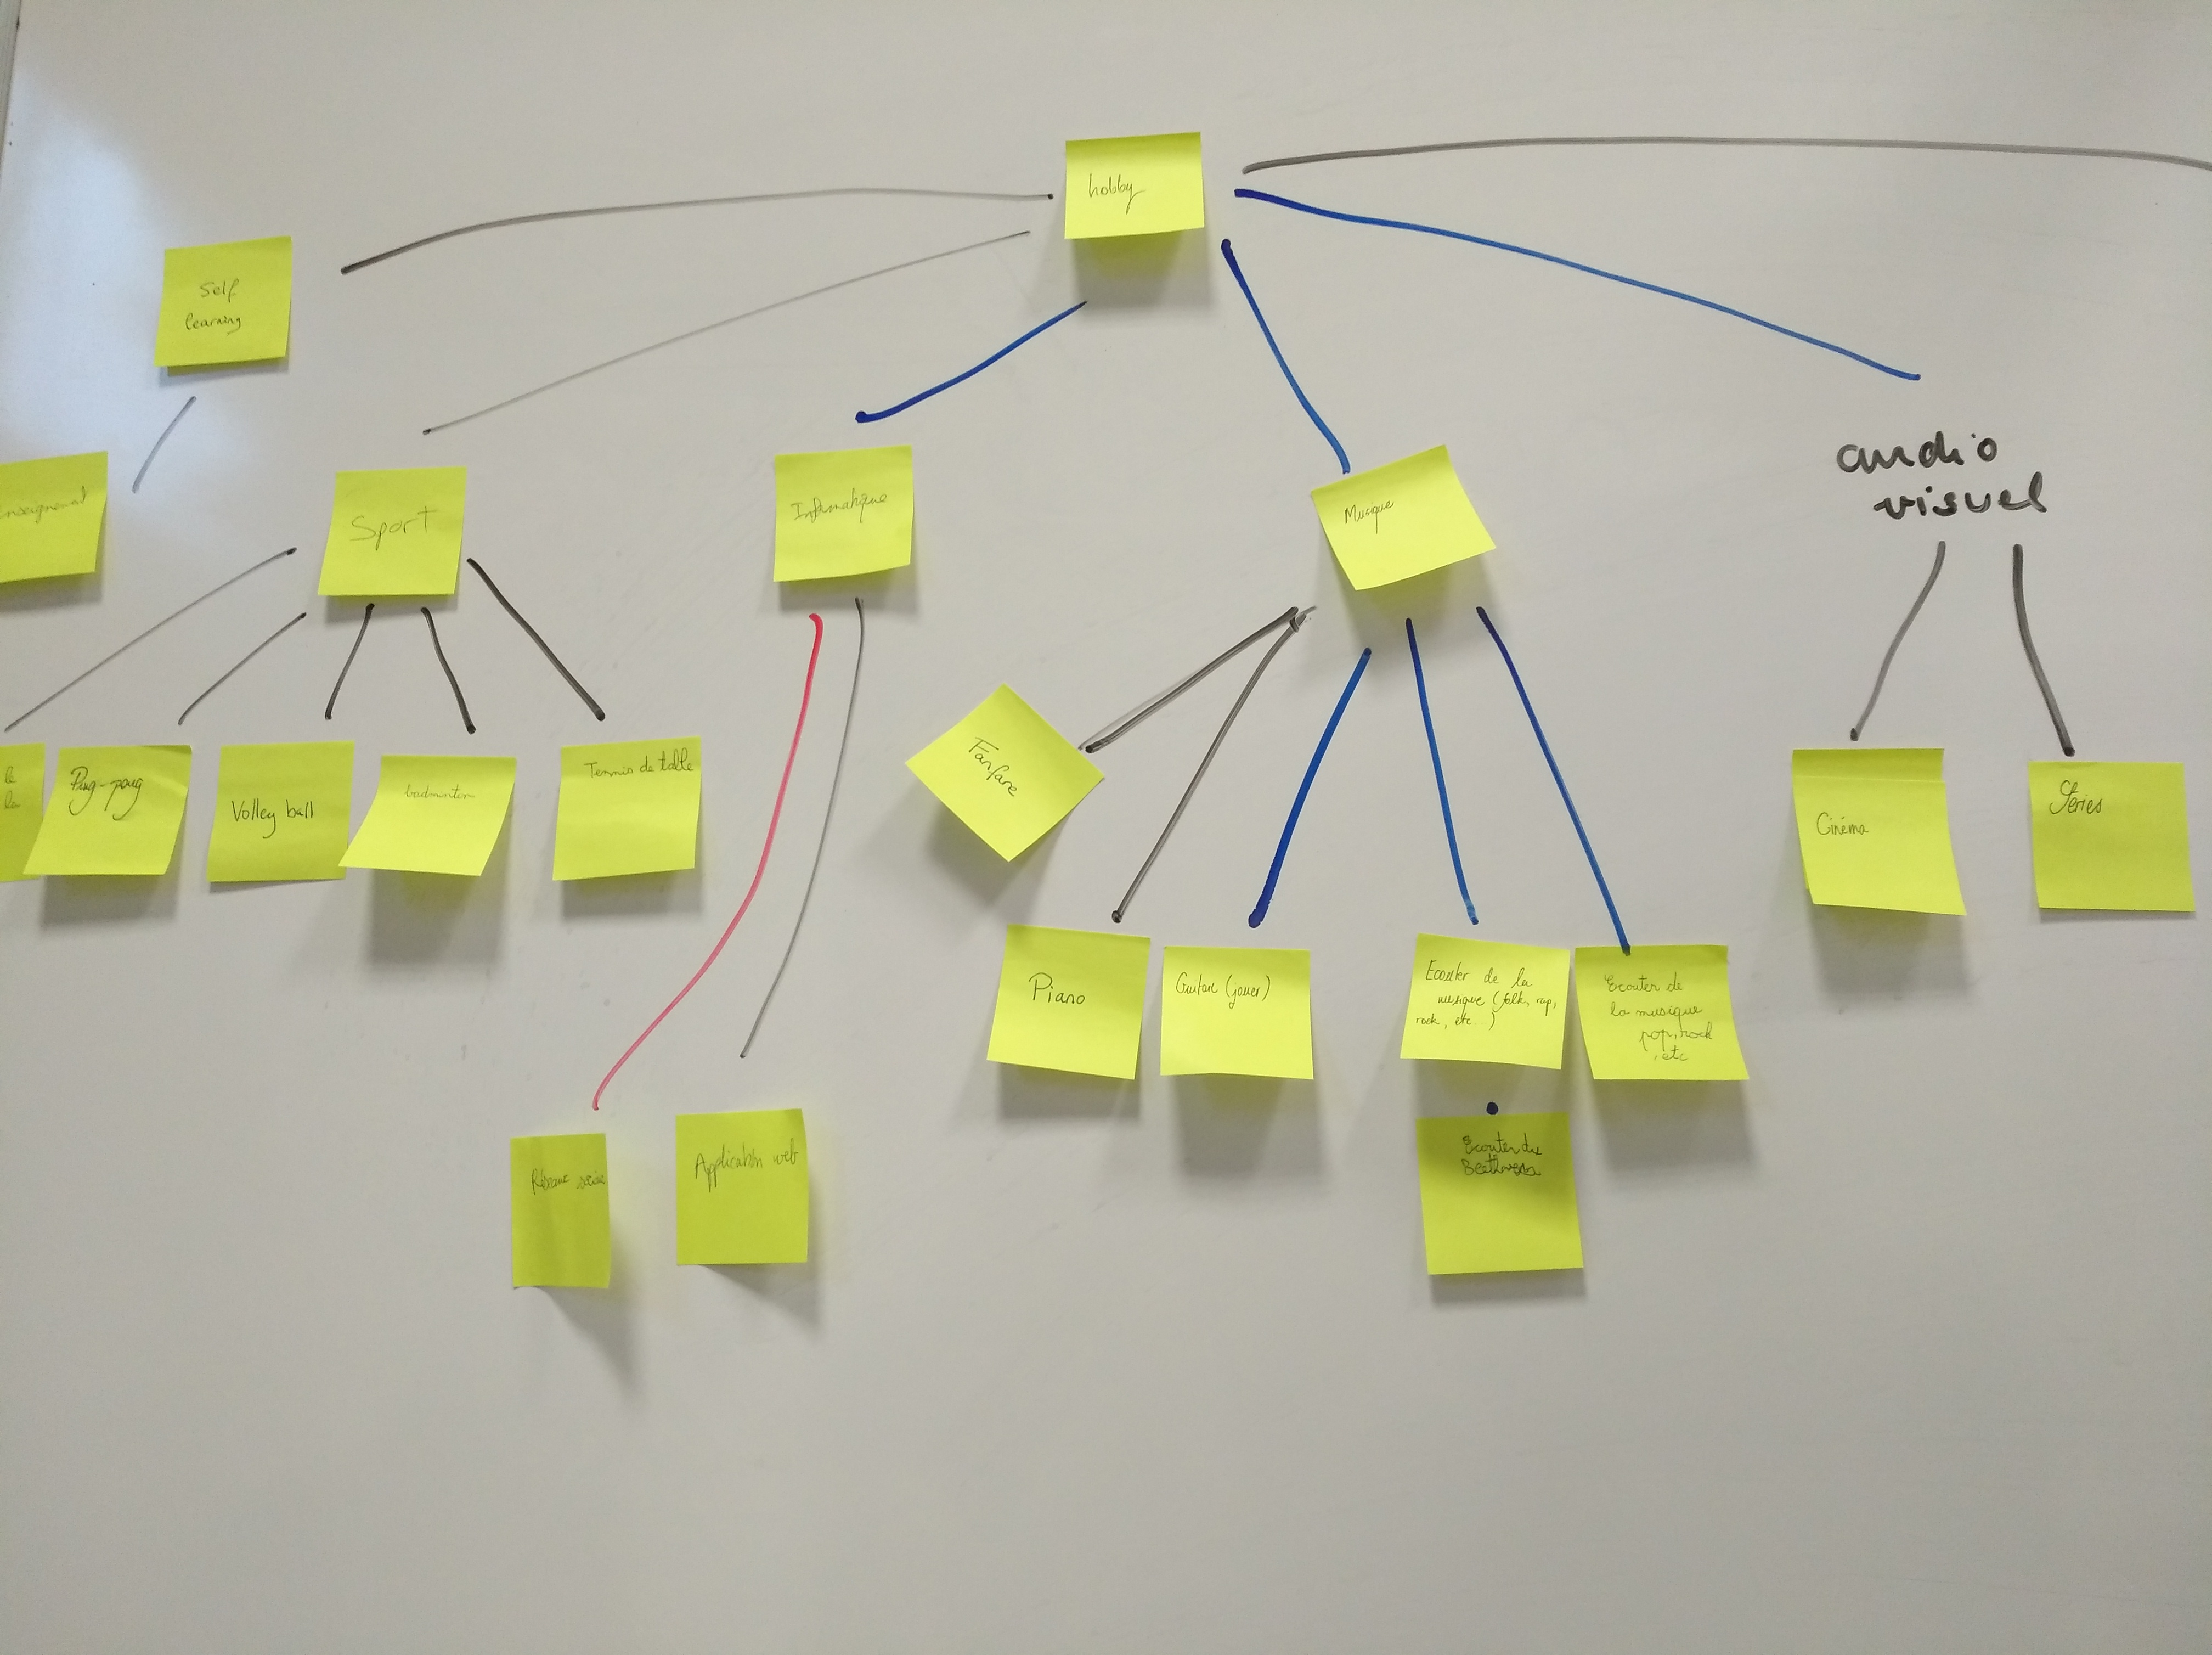 hobby
Self
learning
Sport
Informatique
Musique
audio
visuel
Ping-pong
Volley ball
badminton
Tennis de table
Fanfare
Cinéma
Séries
Piano
Guitare (jouer)
Ecouter de la
musique (folk, rap,
rock, etc...)
Ecouter de
la musique
pop, rock
, etc
Application web
Ecouter du
Beethoven